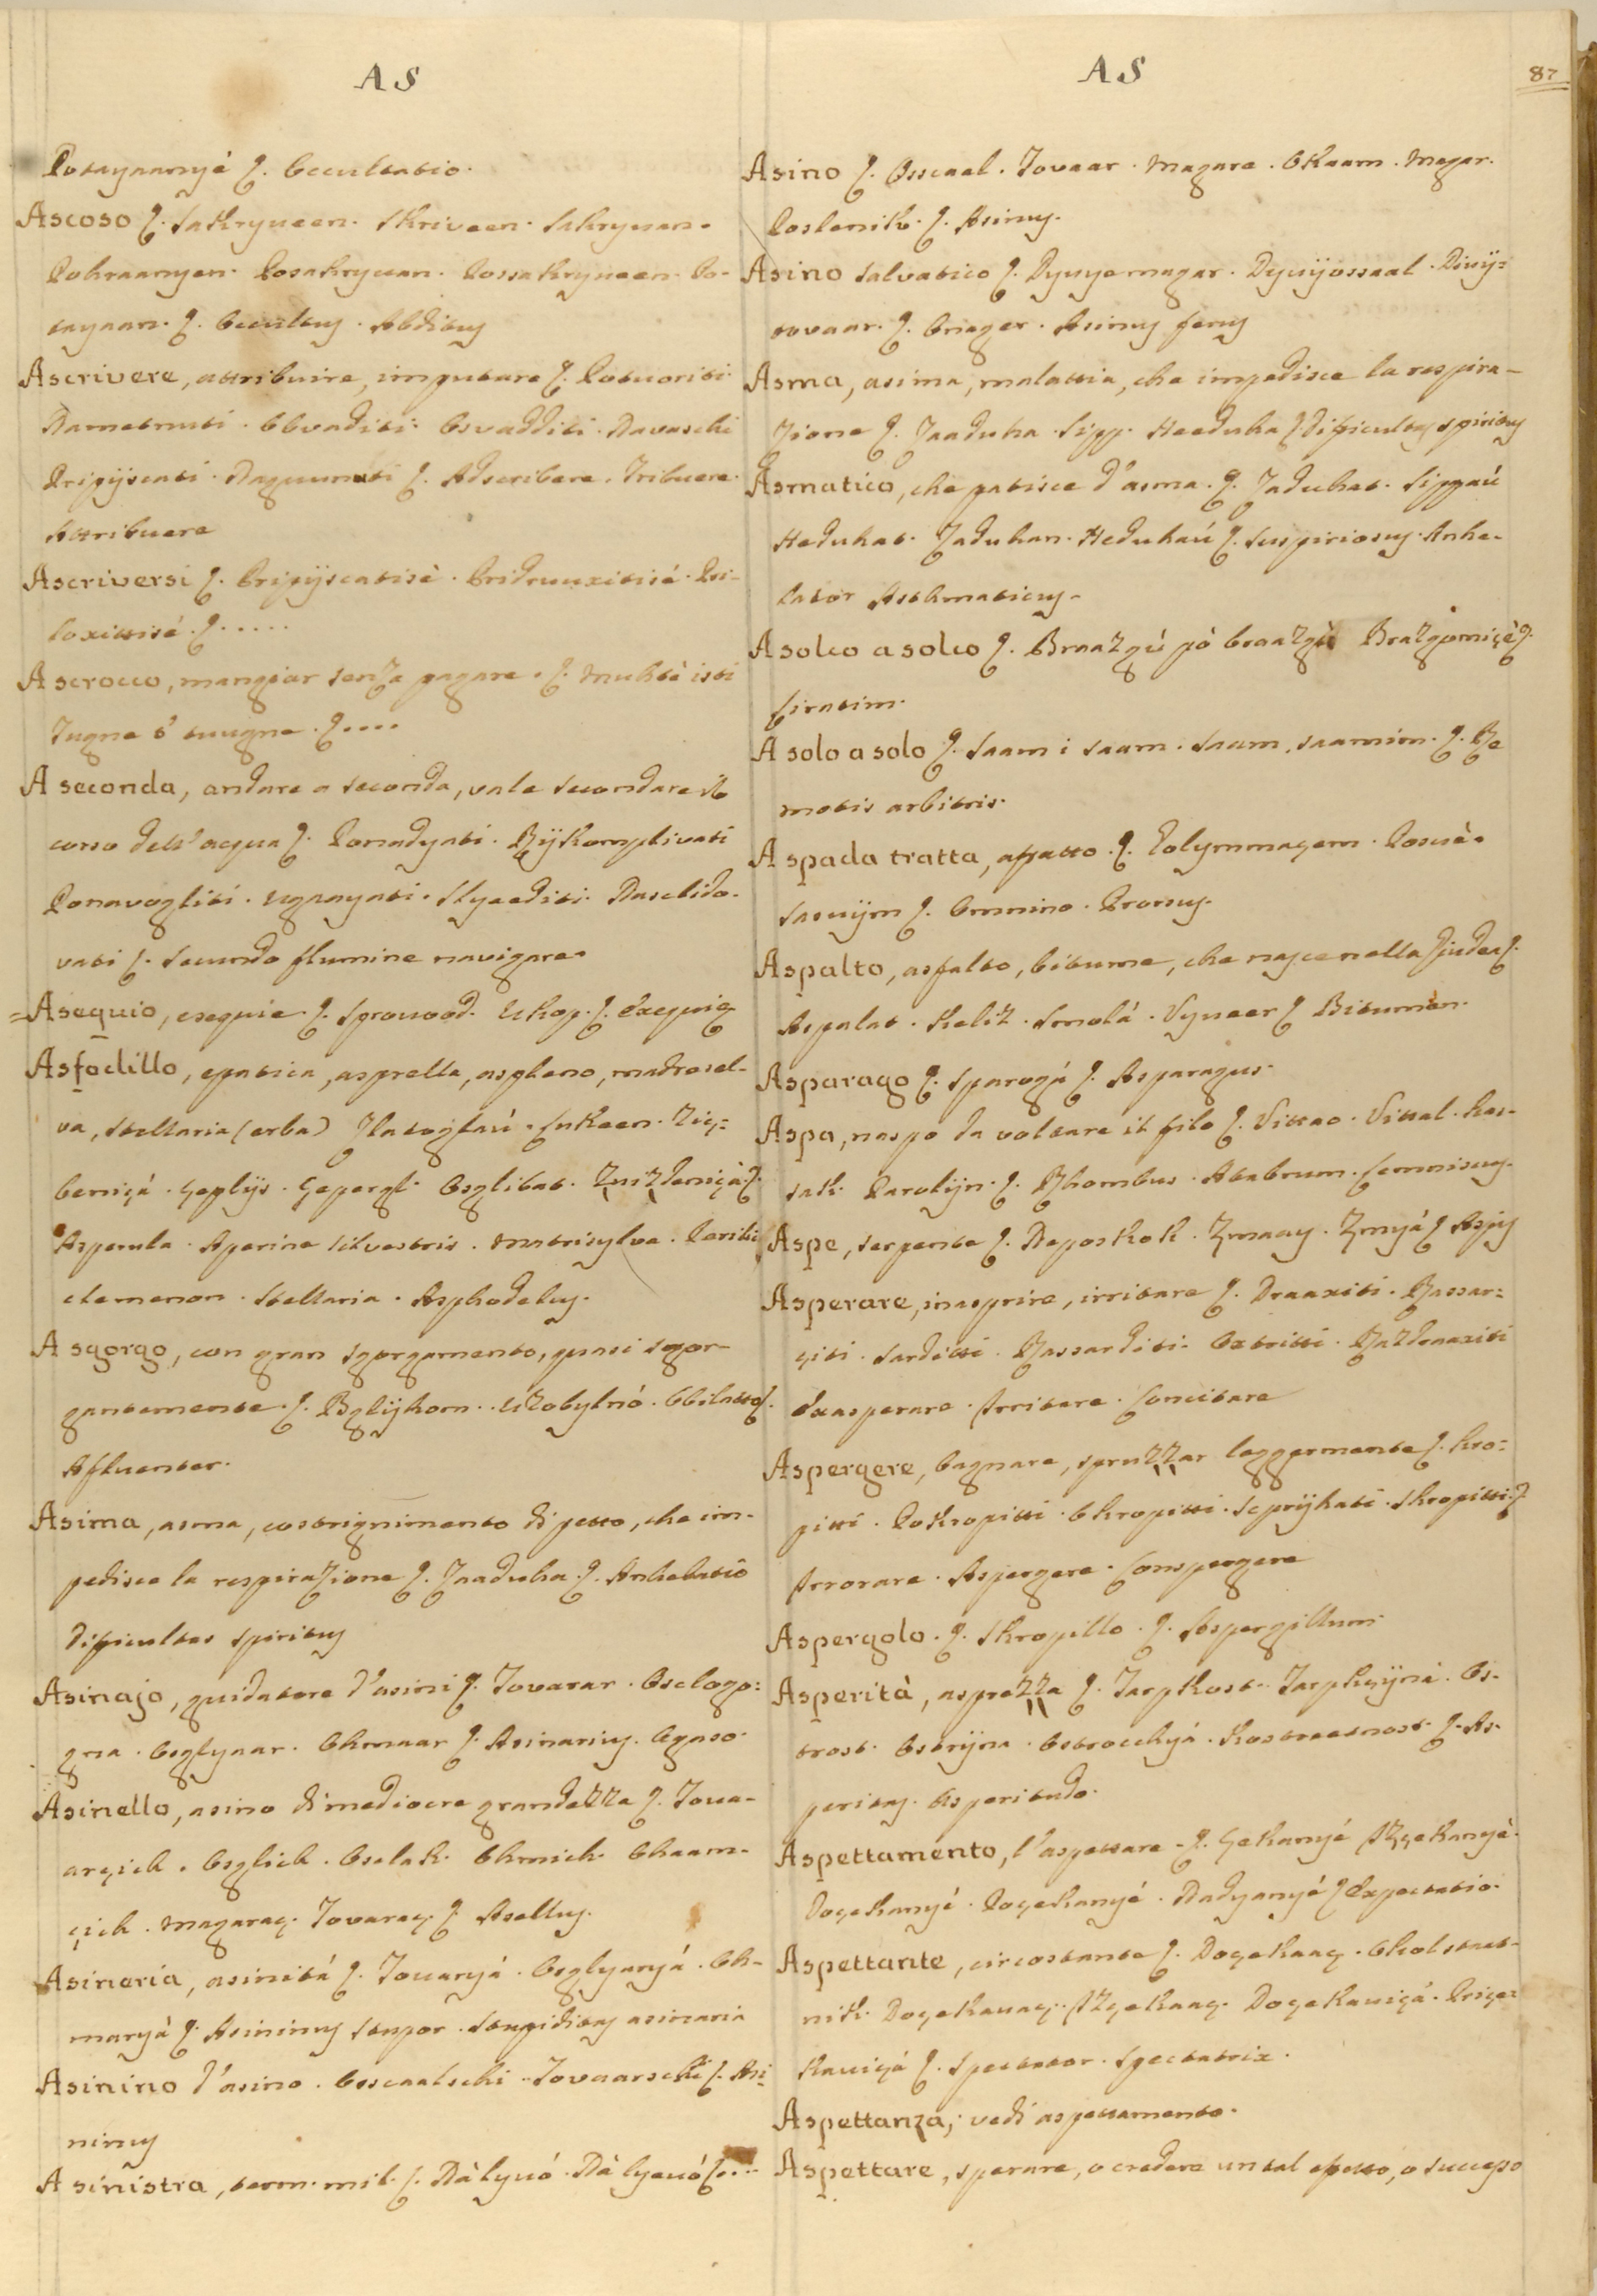 AS
Potayaanyé ſ. Occultatio.
Ascoso ſ. Sakryveen. Skriveen. Sakryvan.
Pohraanyen. Posakryvan. Possakryveen. Po-
tayaan. ſ. Occultus. Abditus
Ascrivere, attribuire, imputare ſ. Potvoriti.
Nametnuti. Obvaditi. Osvadditi. Navaschi
Pripijscati. Naguunati ſ. Adscribere. Tribuere.
Attribuere
Ascriversi ſ. Pripijscatisè. Pridruuxitisé. Pri-
loxittisé. ſ.....
A scrocco, mangiar senza pagare. ſ. Muktè isti
Tugne s' tuugne. ſ....
A seconda, andare a seconda, vale secondare il
corso dell' acqua ſ. Ponadyati. Rijkomplivati
Ponavogliti. Ugaayati. Slyeediti. Naslido-
vati ſ. Secundo flumine navigare.
Asequio, esequie. ſ. Sprovood. Ukop. ſ. Exequiæ
Asfodillo, epatica, asprella, aspleno, madresel-
va, stellaria (erba) Zlatoglaú. Sukeen. Zie-
beniçá. Çeplijs. Çepergl. Osglibat. Zvizdeniçà ſ.
Asperula. Aperine silvestris. Matrisylva. Periti
clemenon. Stellaria. Asphodelus.
A sgorgo, con gran sgorgamento, quasi sgor-
gantemente. ſ. Rglijkom. Uzobylnó. Obilatto ſ.
Afluenter.
Asima, asma, costrignimento di petto, che im-
pedisce la respirazione ſ. Zaaduha. ſ. Anhelatio
Dificultas spiritus
Asinajo, guidatore d'asini ſ. Tovarar. Oslogo-
gna. Osglyaar. Okmaar ſ. Asinarius. Agaso.
Asinello, asino di mediocre grandezza ſ. Tova-
arçich. Osglich. Oslak. Okmich. Okaam-
çich. Magaraç. Tovaraç. ſ. Asellus.
Asineria, asinità ſ. Tovaryá. Osglyaryá. Ok-
maryá ſ. Asininus stupor. Stupiditas asinaria
Asinino d'asino. Osscaalschi. Tovaarschi ſ. Asi-
ninus
A sinistra, term. mil. ſ. Nà lyvó. Nà lyevó ſ....
AS
87
Asino ſ. Osscaal. Tovaar. Magare. Okaam. Magar.
Poslenik. ſ. Asinus.
Asino salvatico ſ. Dyvyemagar. Dyvijossaal. Divij-
tovaar. ſ. Onager. Asinus ferus
Asma, asima, malattia, che impedisce la respira-
zione ſ. Zaaduha. Sipp. Heeduha ſ. Dificultas spiritus
Asmatico, che patisce d'asma. ſ. Zaduhat. Sippaú
Heduhat. Zaduhan. Heduhaú ſ. Suspiriosus. Anhe-
lator Asthmaticus.
A solco a solco ſ. Braazgú pó braazgù Brazgomiçè ſ.
Liratim.
A solo a solo ſ. Saam i saam. Saam, saamim. ſ. Re
motis arbitris.
A spada tratta, affatto. ſ. Golymmaçem. Posvè.
Sasvijm ſ. Omnino. Prorsus.
Aspalto, asfalto, bitume, che nasce nella Giudea ſ.
Aspalat. Keliz. Smolá. Vyneer ſ. Bitumen.
Asparago ſ. Sparogá ſ. Asparagus.
Aspa, naspo da voltare il filo ſ. Vittao. Vittal. Kas-
sak. Parolijn. ſ. Rhombus. Alabrum. Lemniscus.
Aspe, serpente ſ. Neposkok. Zmaay. Zmyá ſ. Aspis
Asperare, inasprire, irritare ſ. Draaxiti. Rassar-
çiti. Sarditti. Rassarditi. Oxtritti. Razdraaxiti
Exasperare. Irritare. Concitare
Aspergere, bagnare, spruzzar leggermente ſ. Kro-
pitti. Pokropitti. Okropitti. Seprijkati. Skropitti. ſ.
Irrorare. Aspergere. Conspergere
Aspergolo. ſ. Skropillo. ſ. Aspergillum
Asperità, asprezza ſ. Tarpkost. Tarpkçijná. Os-
trost. Ostrijna. Ostrocchyá. Kostreetnost. ſ. As-
peritas. Asperitudo.
Aspettamento, l'aspettare. ſ. Çekanyé Izçekanyè.
Doçekanyé. Poçekanyé. Nadyanyé ſ. Expectatio.
Aspettante, circostante ſ. Doçekaaç. Okolstaat-
nik. Doçekavaç. Izçekaaç. Doçekaviçá. Priçe-
kaviçá ſ. Spectator. Spectatrix.
Aspettanza, vedi aspettamento.
Aspettare, sperare, o credere un tal effetto, o successo